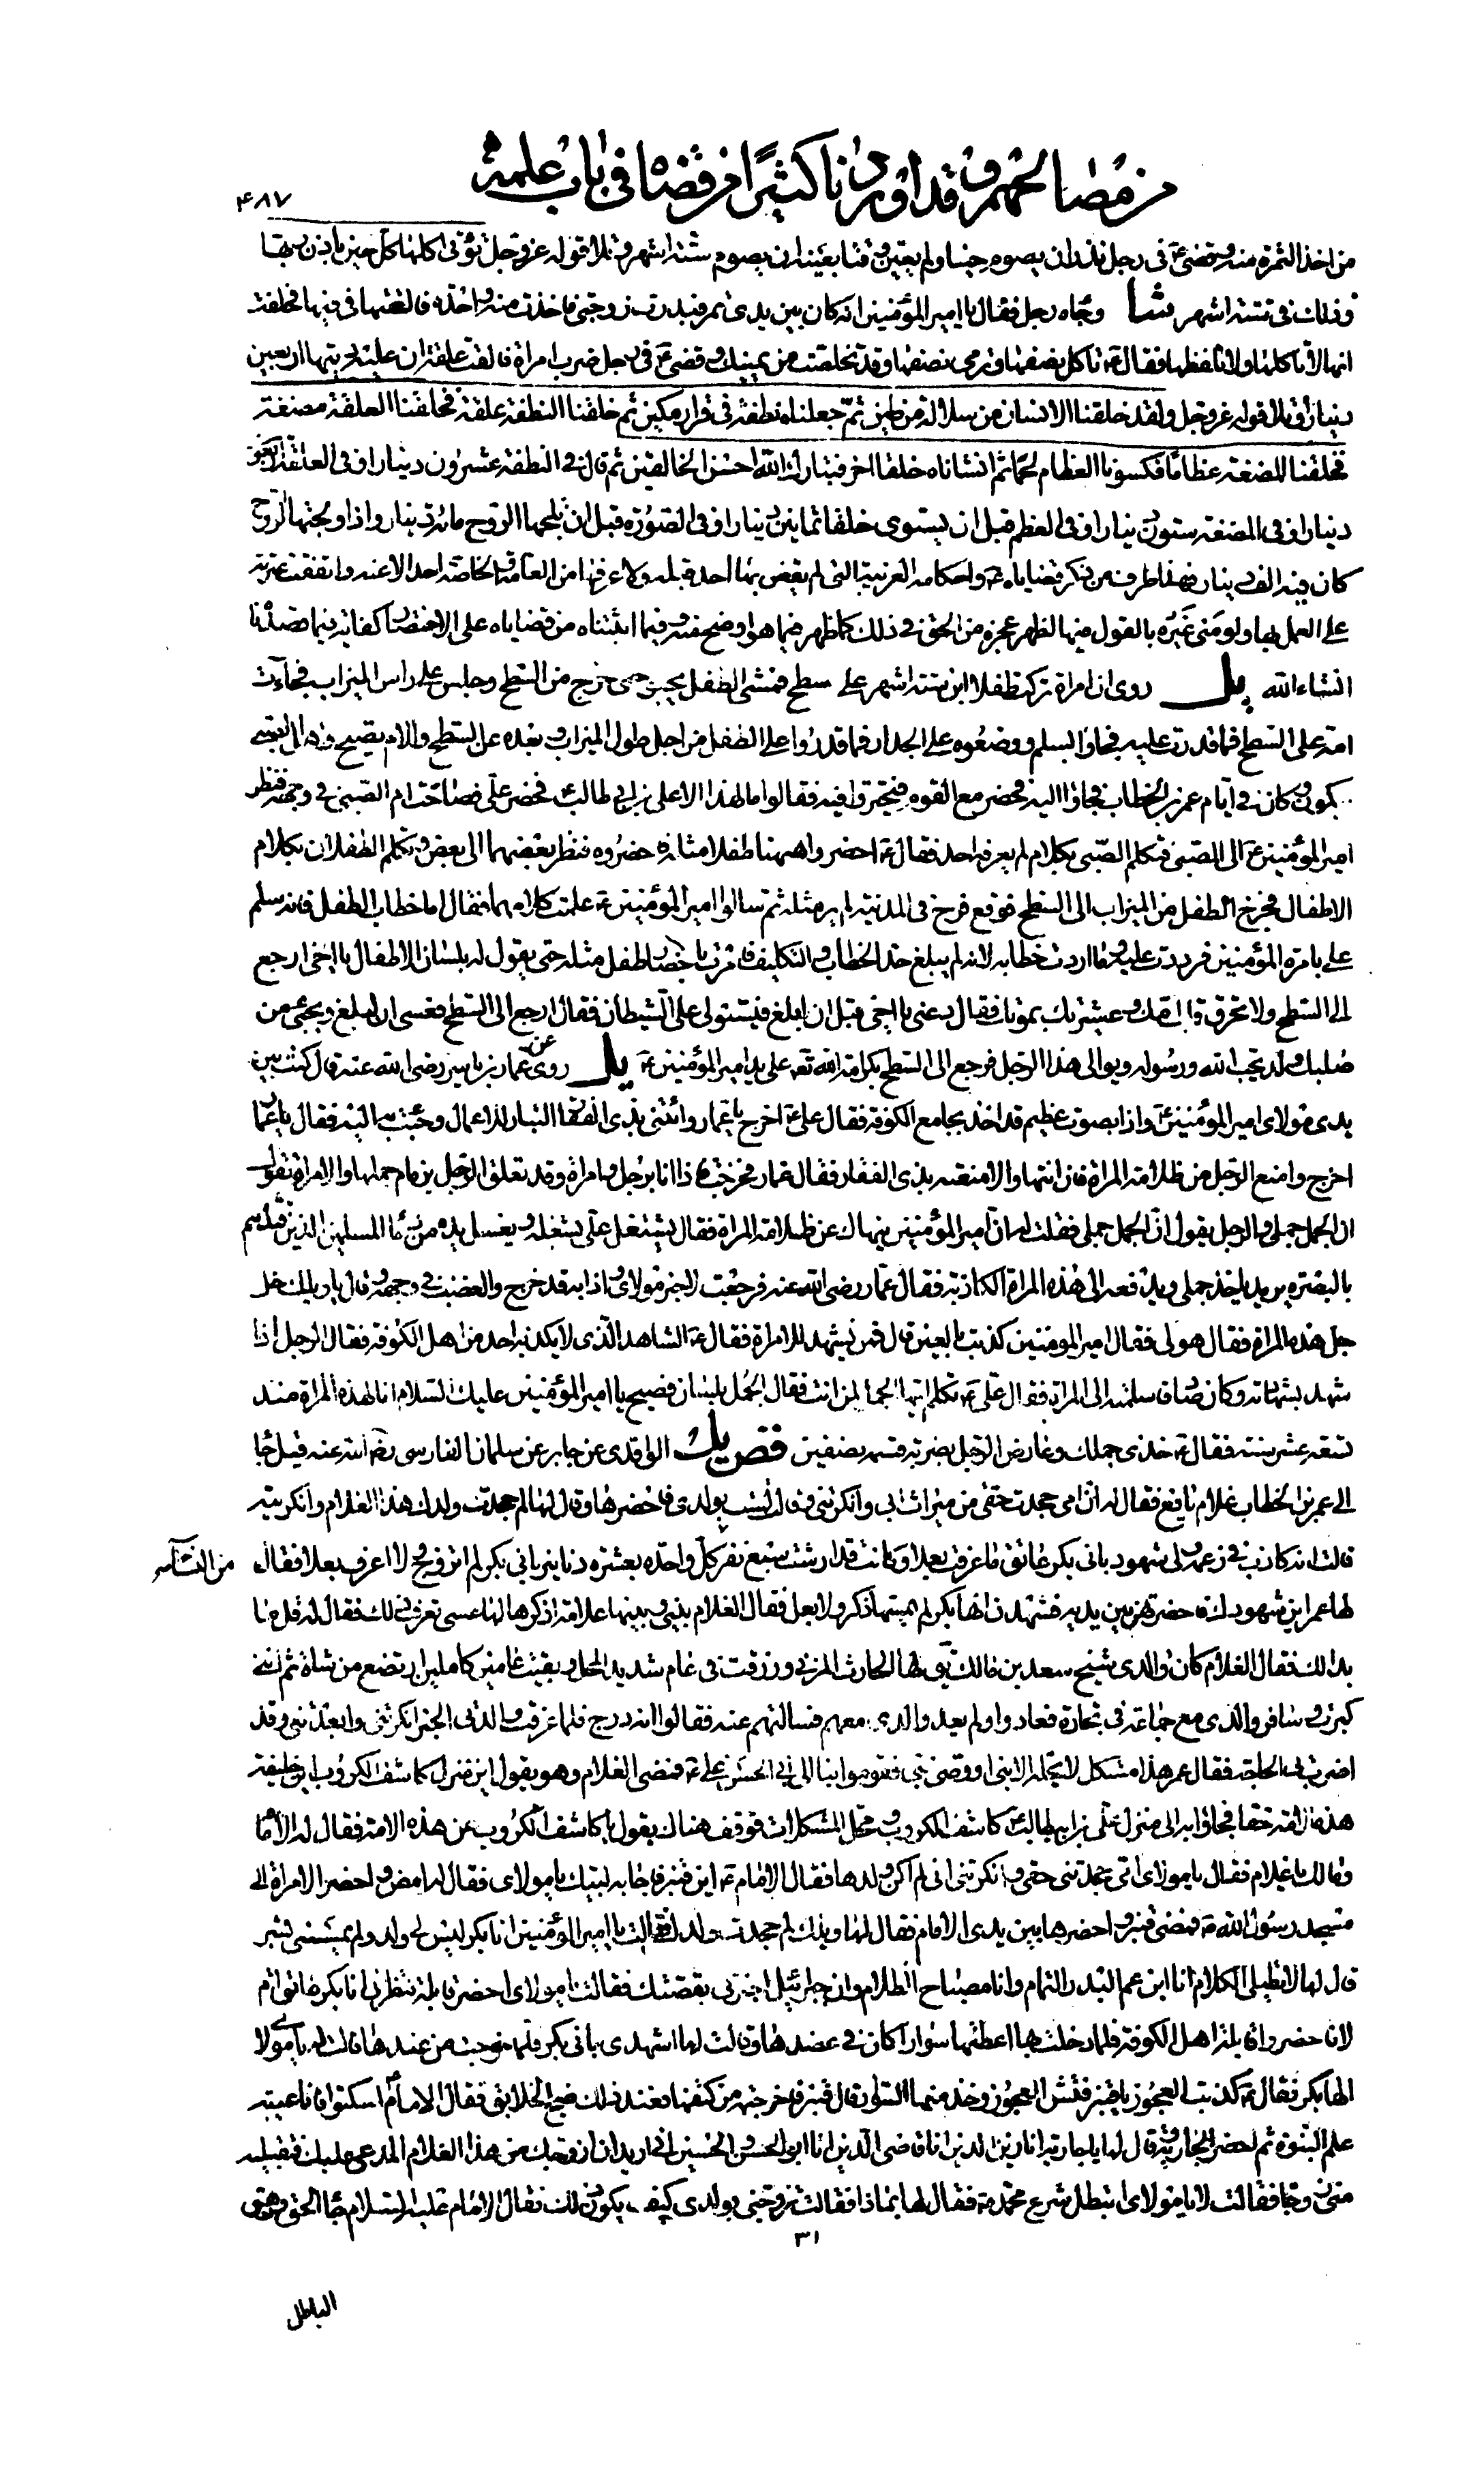 من مصالحهم وقد اوردنا كثيرا من قضاه فى باب علمه
۴۸۷
من اخذ الثمرة منه وقضى ع فى رجل نذر ان يصوم حينا ولم يعين وقتا بعينه ان يصوم ستة اشهر وتلا قوله عز وجل تؤتى اكلها كل حين باذن ربها
وذلك فى ستة اشهر شا وجاءه رجل فقال يا امير المؤمنين انه كان بين يدى تمر فبدرت زوجتى فاخذت منه واحدة فالقتها فى فيها فحلفت
انها لا تاكلها ولا تلفظها فقال ع تاكل نصفها وترمى نصفها وقد تخلصت من يمينك وقضى ع فى رجل ضرب امراة فالقت علقة ان عليه ديتها اربعين
دينارا وتلا قوله عز وجل ولقد خلقنا الانسان من سلالة من طين ثم جعلناه نطفة فى قرار مكين ثم خلقنا النطفة علقة فخلقنا العلقة مضغة
فخلقنا المضغة عظاما فكسونا العظام لحما ثم انشاناه خلقا اخر فتبارك الله احسن الخالقين ثم قال فى النطفة عشرون دينارا وفى العلقة اربعون
دينارا وفى المضغة ستون دينارا وفى العظم قبل ان يستوى خلقا ثمانين دينارا وفى الصورة قبل ان يلجها الروح مائة دينار واذا ولجتها الروح
كان فيه الف دينار فهذا طرف من ذكر قضاياه ع واحكامه الغريبة التى لم يقض بها احد قبله ولا عرفها من العامة والخاصة احد الا عنه واتفقت عترته
على العمل بها ولو منى غيره بالقول فيها لظهر عجزه من الحق فى ذلك كما ظهر فيما هو اوضح منه وفيما اثبتناه من قضاياه على الاختصار كفاية فيما قصدناه
انشاء الله يل روى ان امراة تركت طفلا ابن ستة اشهر على سطح فمشى الطفل يحبو حتى خرج من السطح وجلس على راس الميزاب فجاءت
امه على السطح فما قدرت عليه فجاؤا بسلم ووضعوه على الجدار فما قدروا على الطفل من اجل طول الميزاب وبعده عن السطح والام تصيح واهل الصبى
يبكون وكان فى ايام عمر بن الخطاب فجاؤا اليه فحضر مع القوم فتحيروا فيه فقالوا ما لهذا الا على بن ابى طالب ع فحضر على فصاحت ام الصبى فى وجهه فنظر
امير المؤمنين ع الى الصبى فتكلم الصبى بكلام لم يعرفه احد فقال ع احضروا ههنا طفلا مثله فاحضروه فنظر بعضهما الى بعض وتكلم الطفلان بكلام
الاطفال فخرج الطفل من الميزاب الى السطح فوقع فرح فى المدينة لم ير مثله ثم سالوا امير المؤمنين ع علمت كلامهما فقال اما خطاب الطفل فانه سلم
على بامرة المؤمنين فرددت عليه وما اردت خطابه لانه لم يبلغ حد الخطاب والتكليف فامرت باحضار طفل مثله حتى يقول له بلسان الاطفال يا اخى ارجع
الى السطح ولا تحرق قلب امك وعشيرتك بموتك فقال دعنى يا اخى قبل ان ابلغ فيستولى على الشيطان فقال ارجع الى السطح فعسى ان تبلغ ويجئ من
صلبك ولد يحب الله ورسوله ويوالى هذا الرجل فرجع الى السطح بكرامة الله تعه على يد امير المؤمنين ع يل روى عن عمار بن ياسر رضى الله عنه قال كنت بين
يدى مولاى امير المؤمنين ع واذا بصوت عظيم قد اخذ بجامع الكوفة فقال على ع اخرج يا عمار وائتنى بذى الفقار البتار للاعمال وجئت به اليه فقال يا عمار
اخرج وامنع الرجل من ظلامة المراة فان انتهى والا منعته بذى الفقار فقال عمار فخرجت فاذا انا برجل وامراة وقد تعلق الرجل بزمام جملها والامراة تقول
ان الجمل جملى والرجل يقول ان الجمل جملى فقلت له ان امير المؤمنين ينهاك عن ظلامة المراة فقال يشتغل على بشغله ويغسل يده من دماء المسلمين الذين قتلهم
بالبصرة يريد ياخذ جملى ويدفعه الى هذه المراة الكاذبة فقال عمار رضى الله عنه فرجعت لاخبر مولاى واذا به قد خرج والغضب فى وجهه وقال يا ويلك خل
جمل هذه المراة فقال هو لى فقال امير المومنين كذبت يا لعين قال فمن يشهد للامراة فقال ع الشاهد الذى لا يكذبه احد من اهل الكوفة فقال الرجل اذا
شهد بشهادته وكان صادقا سلمته الى المراة فقال على ع تكلم ايها الجمل لمن انت فقال الجمل بلسان فصيح يا امير المؤمنين عليك السلام انا لهذه المراة منذ
تسعة عشر سنة فقال ع خذى جملك وعارض الرجل بضربة قسمه نصفين فض يل الواقدى عن جابر عن سلمان الفارسى رضى الله عنه قيل جاء
الى عمر بن الخطاب غلام يافع فقال له ان امى جحدت حقى من ميراث ابى وانكرتنى وقالت لست بولدى فاحضرها وقال لها لم جحدت ولدك هذا الغلام وانكرتيه
قالت انه كاذب فى زعمه ولى شهود بانى بكر عاتق ما عرفت بعلا وكانت قد ارشت سبع نفر كل واحدة بعشرة دنانير بانى بكر لم اتزوج ولا اعرف بعلا فقال
من النساء
لها عمر اين شهودك فاحضرتهن بين يديه فشهدن انها بكر لم يمسها ذكر ولا بعل فقال الغلام بينى وبينها علامة اذكرها لها عسى تعرف ذلك فقال له قل ما
بدا لك فقال الغلام كان والدى شيخ سعد بن مالك يق لها الحارث المزنى ورزقت فى عام شديد المحل وبقيت عامين كاملين ارتضع من شاة ثم اننى
كبرت وسافر والدى مع جماعة فى تجارة فعادوا ولم يعد والدى معهم فسالتهم عنه فقالوا انه درج فلما عرفت والدتى الخبر انكرتنى وابعدتنى وقد
اضرت بى الحاجة فقال عمر هذا مشكل لا يحله الا نبى او وصى نبى فقوموا بنا الى ابى الحسن على ع فمضى الغلام وهو يقول اين منزل كاشف الكروب اين خليفة
هذه الامة حقا فجاؤا به الى منزل على بن ابى طالب ع كاشف الكروب ومحل المشكلات فوقف هناك يقول يا كاشف الكروب عن هذه الامة فقال له الامام
وما لك يا غلام فقال يا مولاى امى جحدتنى حقى وانكرتنى انى لم اكن ولدها فقال الامام ع اين قنبر فاجابه لبيك يا مولاى فقال له امض واحضر الامراة الى
مسجد رسول الله ص فمضى قنبر واحضرها بين يدى الامام فقال لها ويلك لم جحدت ولدك فقالت يا امير المؤمنين انا بكر ليس لى ولد ولم يمسسنى بشر
قال لها لا تطيلى الكلام انا ابن عم البدر التمام وانا مصباح الظلام وان جبرئيل اخبرنى بقصتك فقالت يا مولاى احضر قابلة تنظرنى انا بكر عاتق ام
لا فاحضروا قابلة اهل الكوفة فلما دخلت بها اعطتها سوارا كان فى عضدها وقالت لها اشهدى بانى بكر فلما خرجت من عندها قالت له يا مولاى
انها بكر فقال ع كذبت العجوز يا قنبر فتش العجوز وخذ منها السوار قال قنبر فاخرجته من كتفها فعند ذلك ضج الخلايق فقال الامام ع اسكتوا فانا عيبة
علم النبوة ثم احضر الجارية وقال لها يا جارية انا زين الدين انا قاضى الدين انا ابو الحسن والحسين انى اريد ان ازوجك من هذا الغلام المدعى عليك فتقبليه
منى زوجا فقالت لا يا مولاى اتبطل شرع محمد ص فقال لها بماذا فقالت تزوجنى بولدى كيف يكون ذلك فقال الامام عليه السلام جاء الحق وزهق
۳۱
الباطل